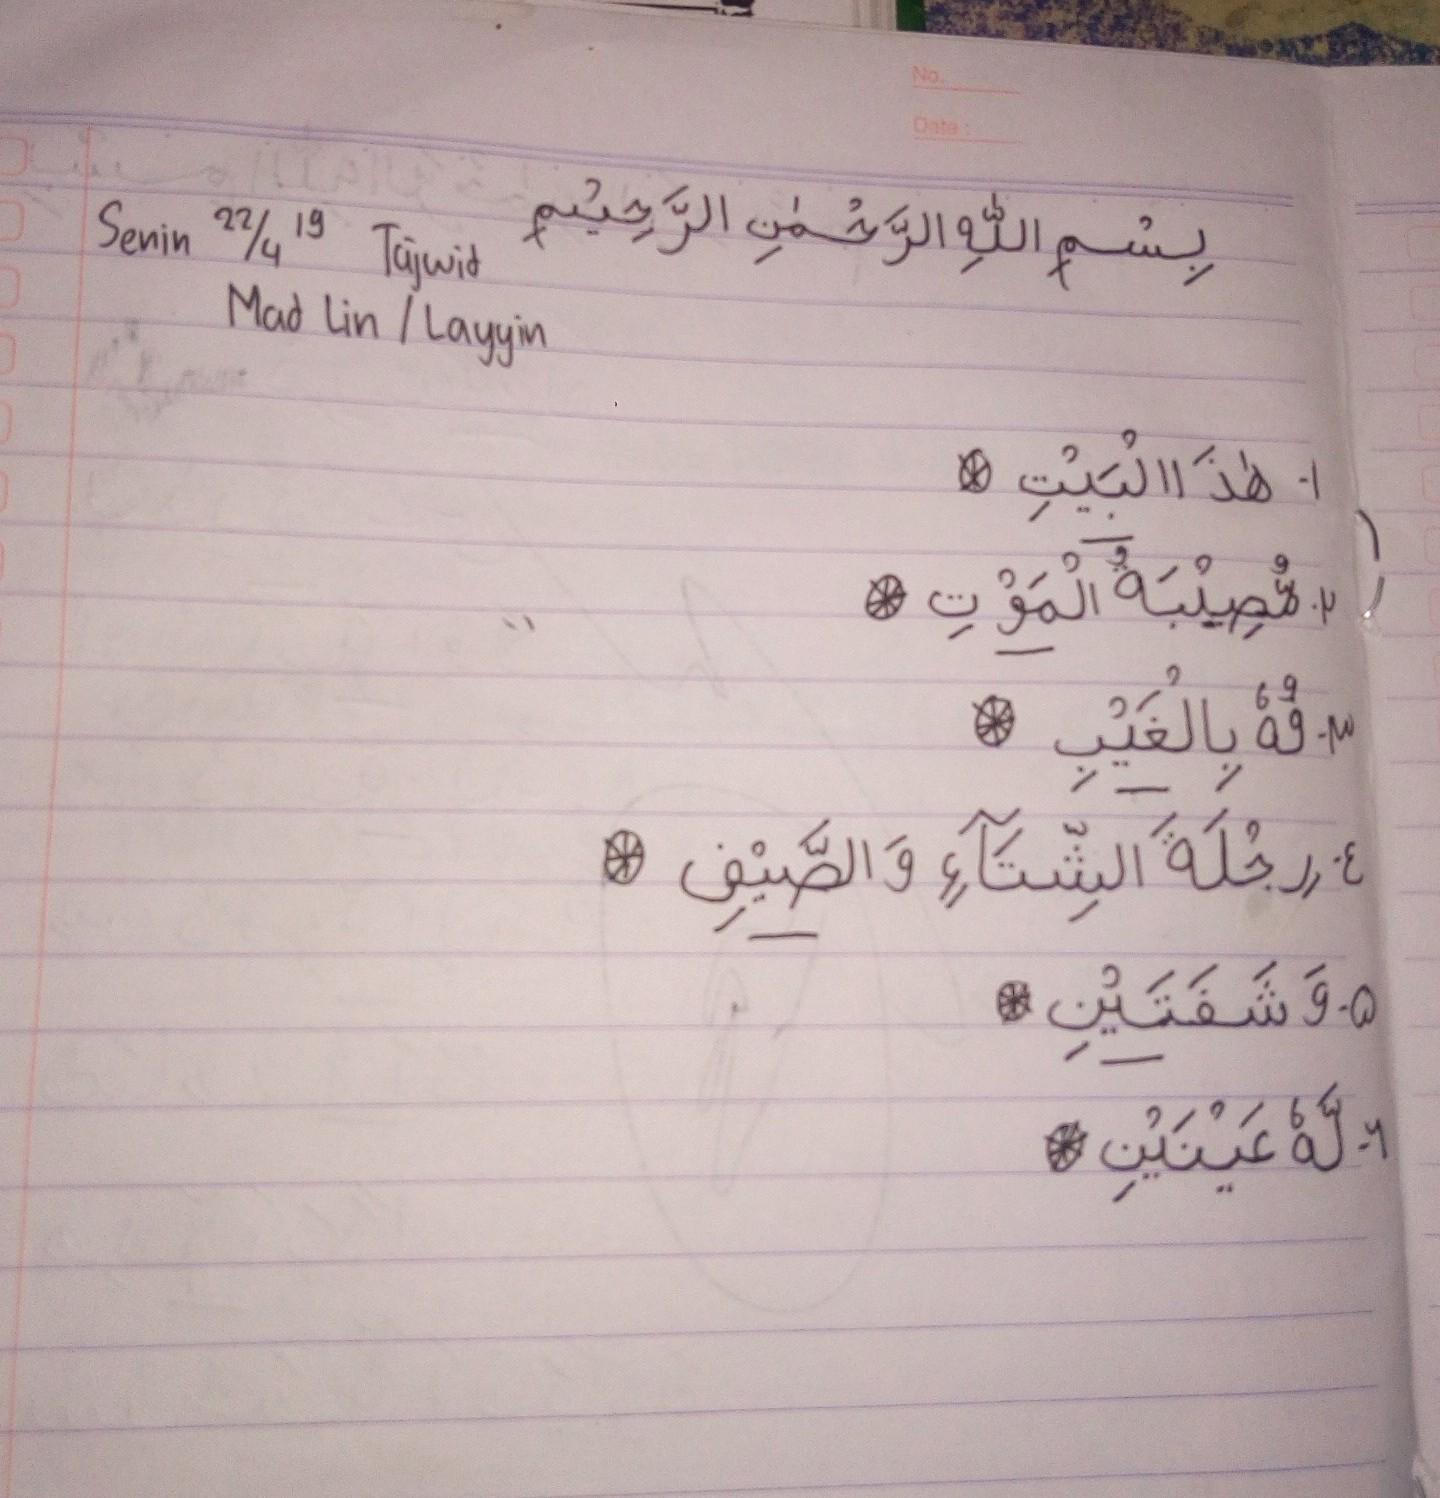 No.
Date :
Senin 22/4 19 Tajwid بِسْمِ اللّٰهِ الرَّحْمٰنِ الرَّحِيْمِ
Mad Lin / Layyin
١- هٰذَا الْبَيْتِ
٢- مُصِيْبَةُ الْمَوْتِ
٣- بِالْغَيْبِ
٤- رِحْلَةَ الشِّتَآءِ وَالصَّيْفِ
٥- وَشَفَتَيْنِ
٦- لَّهٗ عَيْنَيْنِ